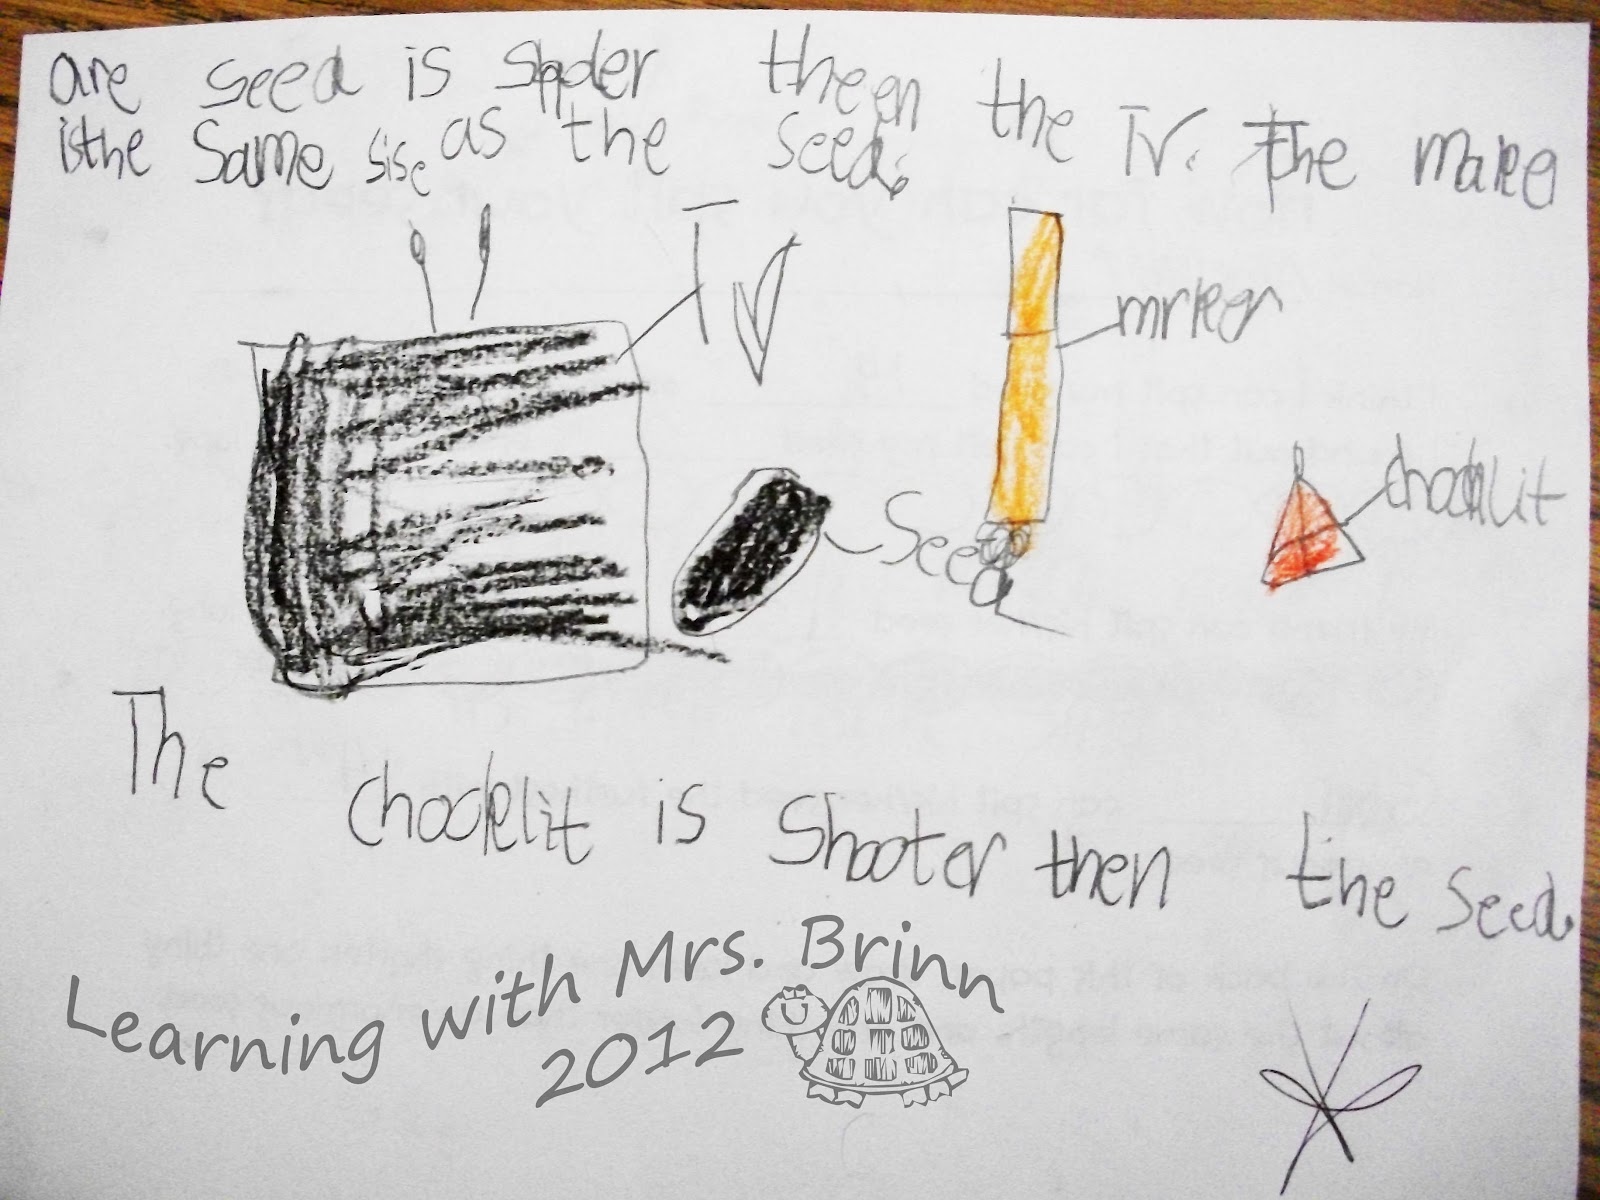 are seed is spder theen the TV. The marker
is the same sise as the seed.
TV
mrker
seed
chocklit
The chocklit is shooter then the seed.
Learning with Mrs. Brinn
2012